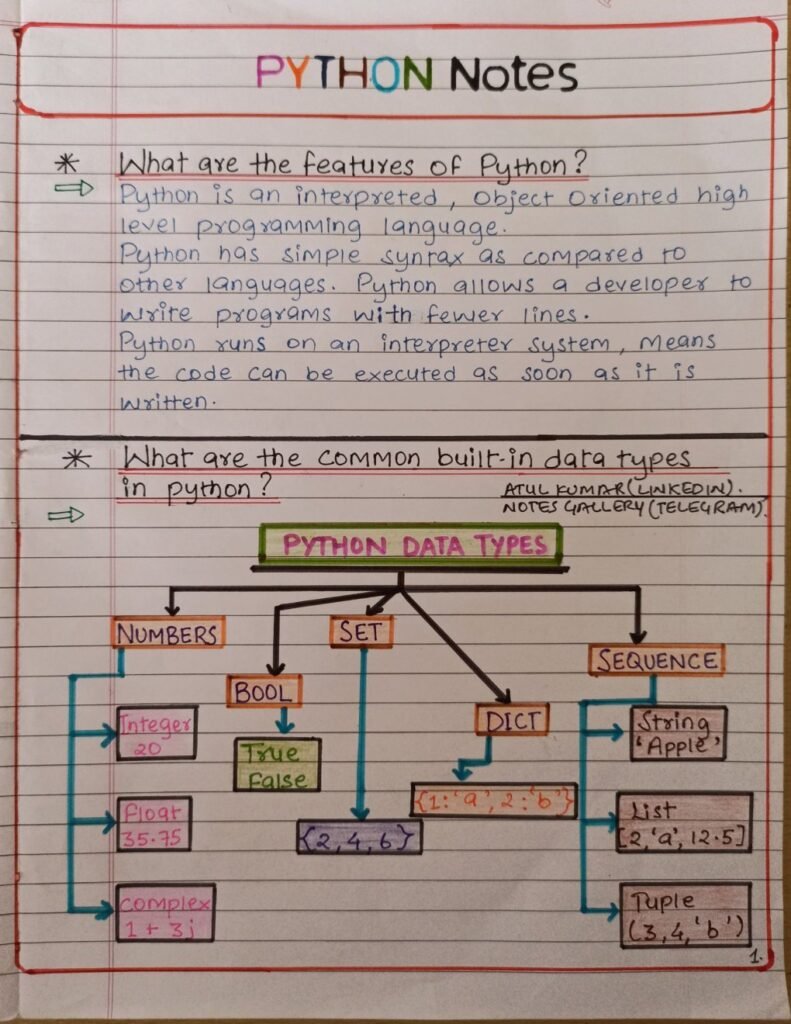 PYTHON Notes
* What are the features of Python?
⇒ Python is an interpreted, Object Oriented high
level programming language.
Python has simple syntax as compared to
other languages. Python allows a developer to
write programs with fewer lines.
Python runs on an interpreter system, means
the code can be executed as soon as it is
written.
* What are the common built-in data types
in python?
ATUL KUMAR (LINKEDIN).
NOTES GALLERY (TELEGRAM).
⇒
PYTHON DATA TYPES
NUMBERS
Integer
20
Float
35.75
Complex
1 + 3j
BOOL
True
False
SET
{2,4,6}
DICT
{1:'a', 2:'b'}
SEQUENCE
String
'Apple'
List
[2,'a',12.5]
Tuple
(3,4,'b')
1.